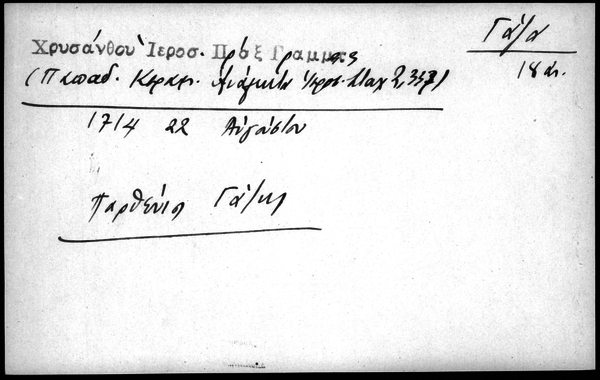 Γάζα
18 αι.
Χρυσάνθου Ιεροσ. Πρὸς Γραμμ
(Παπαδ. Κεραμ. Ἀνάλεκτα Ἱεροσ. Σταχ 2,
1714 22 Αὐγούστου
Παρθένιος Γάζης